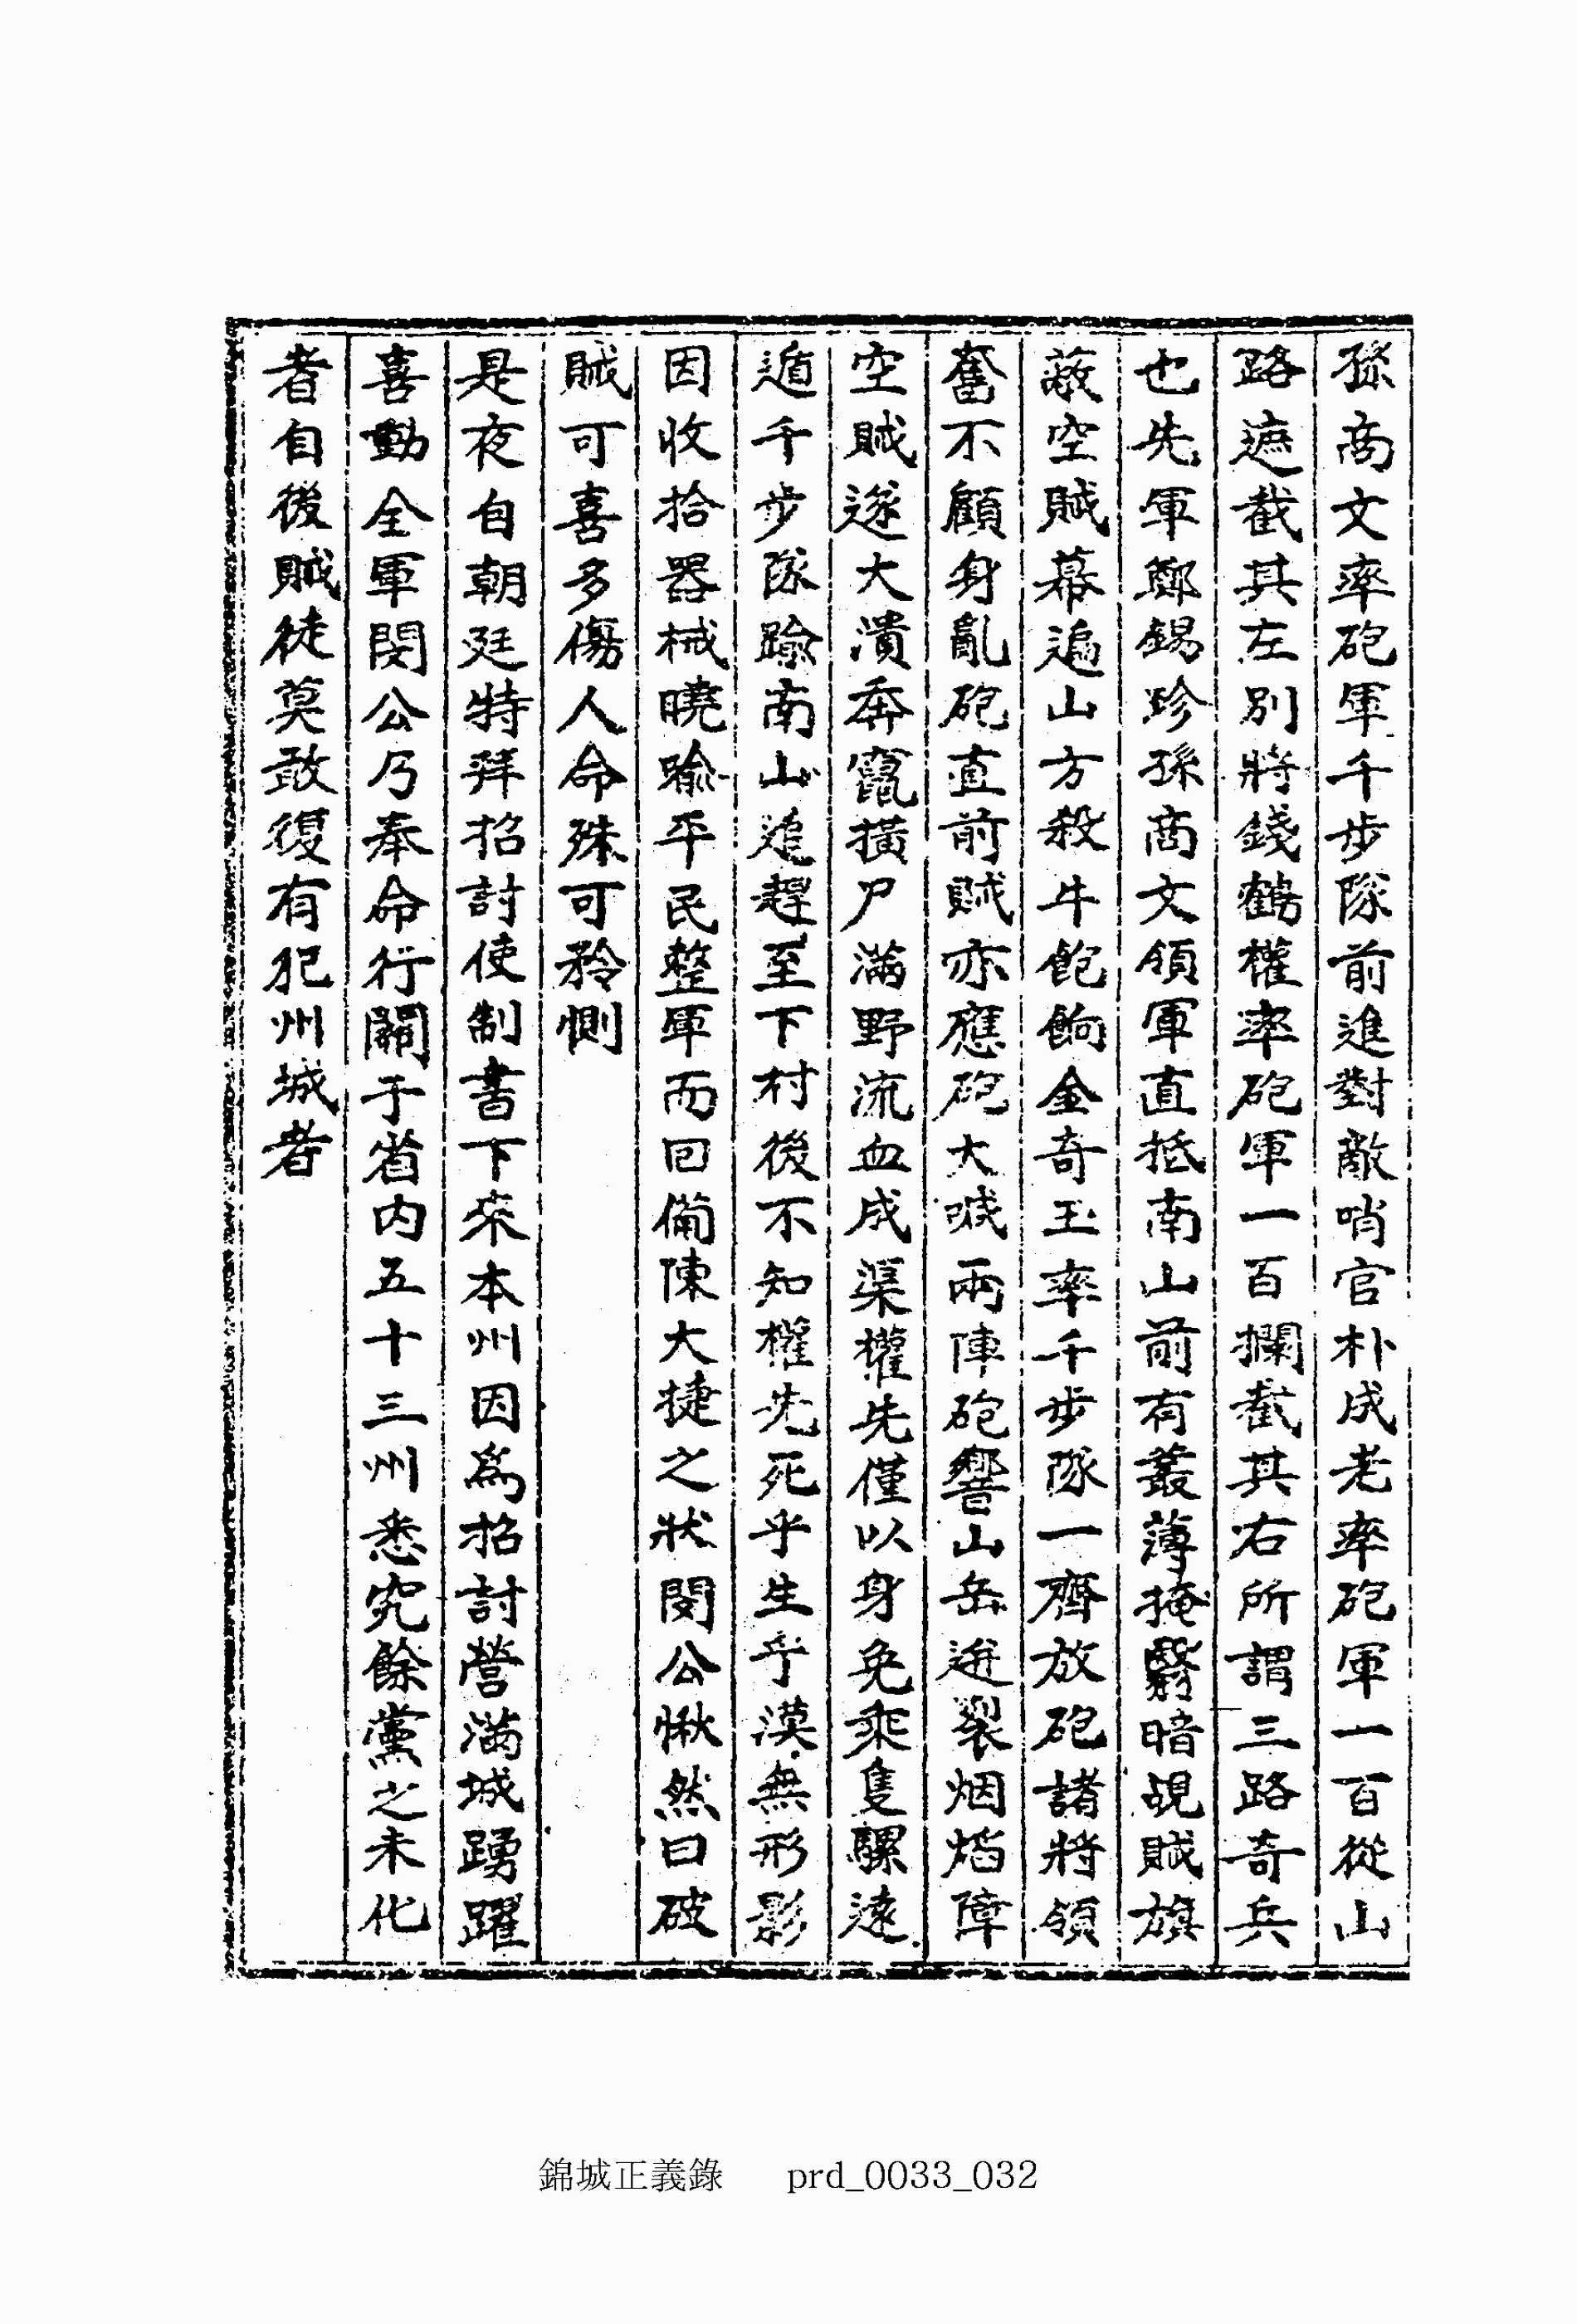 孫商文率砲軍千步隊前進對敵哨官朴成老率砲軍一百從山
路遮截其左別將錢鶴權率砲軍一百攔截其右所謂三路奇兵
也先軍鄭錫珍孫商文領軍直抵南山前有叢薄掩翳暗覘賊旗
蔽空賊幕遍山方殺牛飽餉金奇玉率千步隊一齊放砲諸將領
奮不顧身亂砲直前賊亦應砲大喊兩陣砲響山岳迸裂烟焰障
空賊遂大潰奔竄橫尸滿野流血成渠權先僅以身免乘隻騾遠
遁千步隊踰南山追趕至下村後不知權先死乎生乎漠無形影
因收拾器械曉喩平民整軍而回備陳大捷之狀閔公愀然曰破
賊可喜多傷人命殊可矜惻
是夜自朝廷特拜招討使制書下來本州因爲招討營滿城踴躍
喜動全軍閔公乃奉命行關于省內五十三州悉究餘黨之未化
者自後賊徒莫敢復有犯州城者
錦城正義錄 prd_0033_032